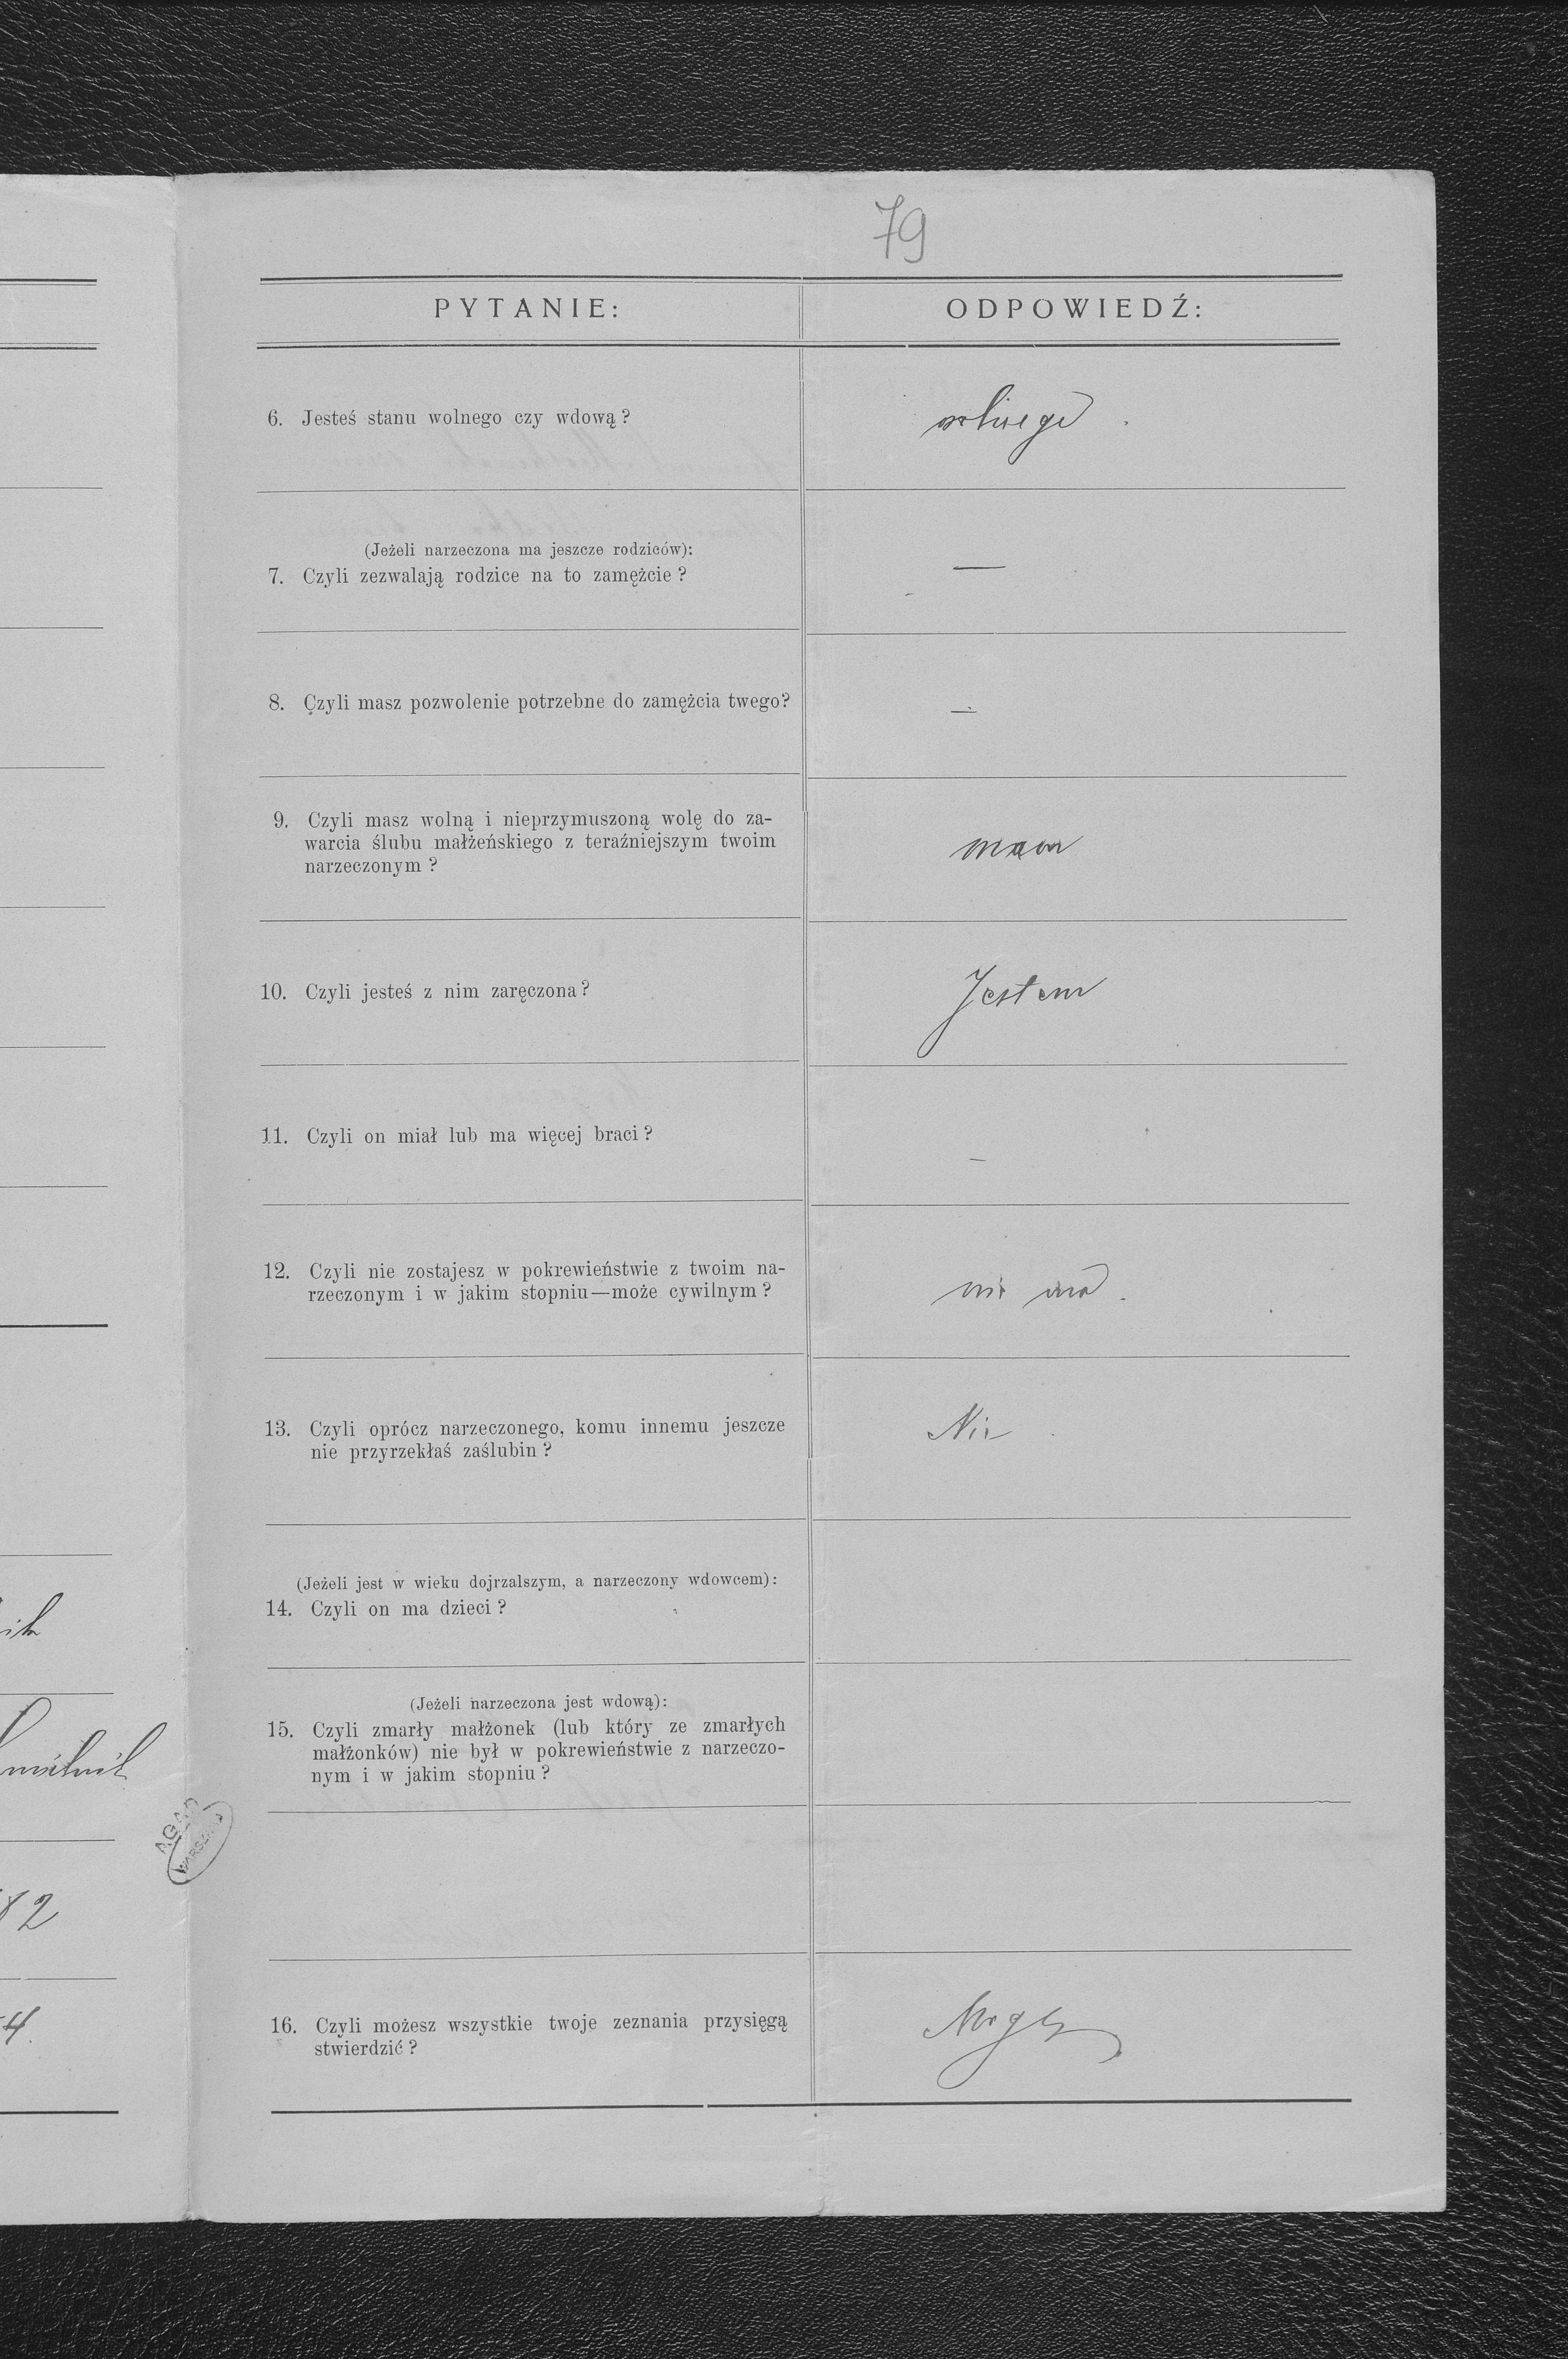 79
PYTANIE:
ODPOWIEDŹ:
6. Jesteś stanu wolnego czy wdową?
wolnego.
(Jeżeli narzeczona ma jeszcze rodziców):
7. Czyli zezwalają rodzice na to zamężcie?
—
8. Czyli masz pozwolenie potrzebne do zamężcia twego?
—
9. Czyli masz wolną i nieprzymuszoną wolę do za-
warcia ślubu małżeńskiego z teraźniejszym twoim
narzeczonym?
mam
10. Czyli jesteś z nim zaręczona?
Jestem
11. Czyli on miał lub ma więcej braci?
—
12. Czyli nie zostajesz w pokrewieństwie z twoim na-
rzeczonym i w jakim stopniu—może cywilnym?
nie ma.
13. Czyli oprócz narzeczonego, komu innemu jeszcze
nie przyrzekłaś zaślubin?
Nie
(Jeżeli jest w wieku dojrzalszym, a narzeczony wdowcem):
14. Czyli on ma dzieci?
(Jeżeli narzeczona jest wdową):
15. Czyli zmarły małżonek (lub który ze zmarłych
małżonków) nie był w pokrewieństwie z narzeczo-
nym i w jakim stopniu?
16. Czyli możesz wszystkie twoje zeznania przysięgą
stwierdzić?
Mogę
AGAD
WARSZAWA
82
4.